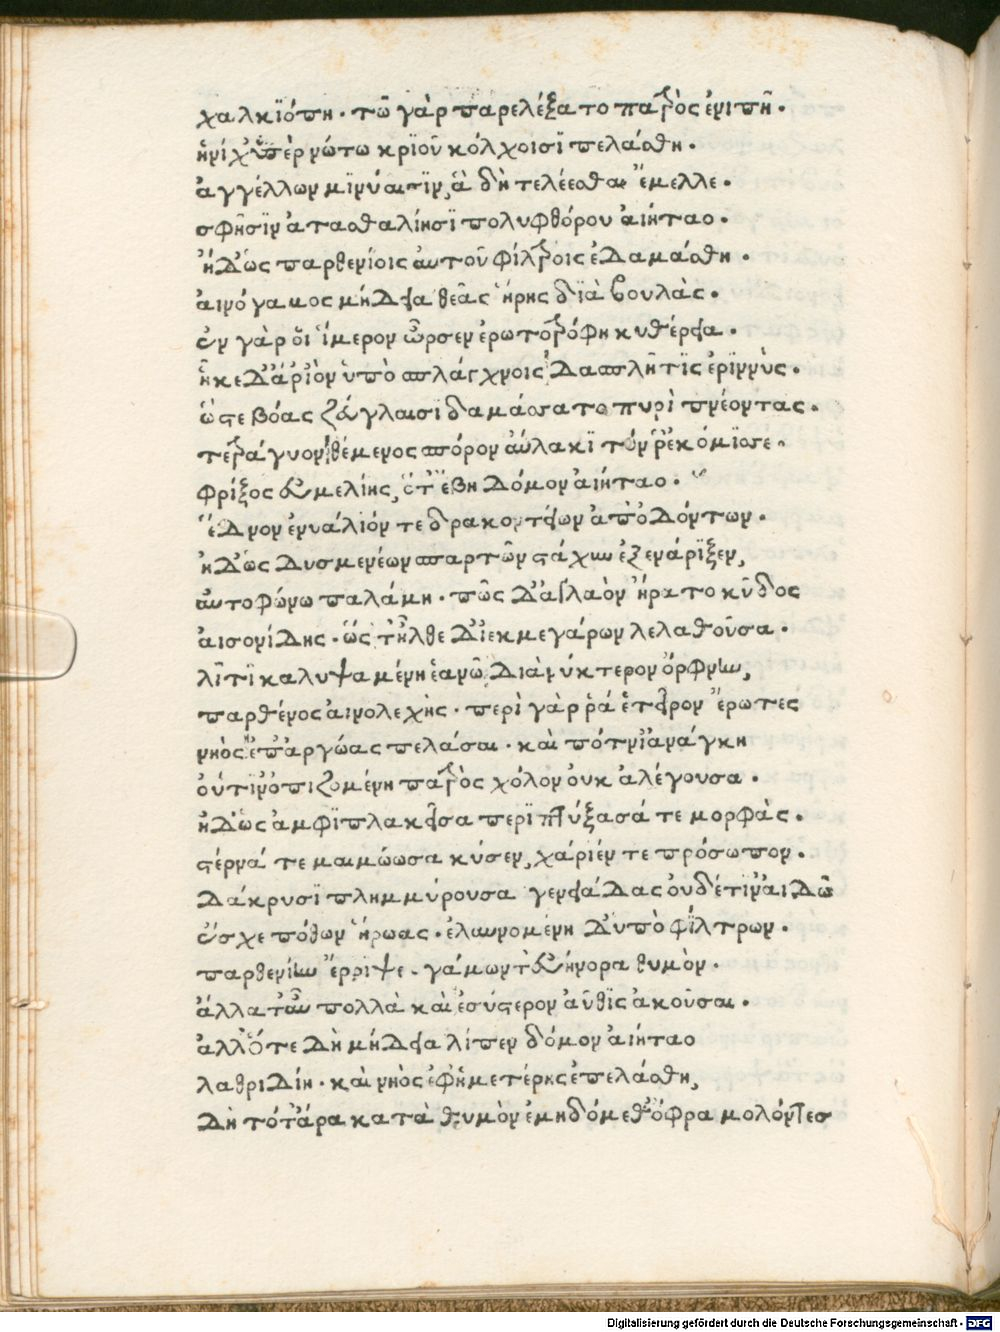 χαλκϊόπη. τῶ γὰρ παρελέξατο πατρὸς ἐνιπῆ.
ἡνίχ' ὑπὲρ νώτω κρϊοῦ κόλχοισϊ πελάσθη.
ἀγγέλλων μϊνύαισϊν, ἃ δὴ τελέεσθαι ἔμελλε.
σφῆσϊν ἀτασθαλίησϊ πολυφθόρου αἰήταο.
ἠδ' ὡς παρθενίοις αὐτοῦ φίλτροις ἐδαμάσθη.
αἰνόγαμος μήδεια θεᾶς ἥρης δϊὰ βουλὰς.
ἐν γὰρ ὅι ἵμερον ὦρσεν ἐρωτοτρόφη κυθέρεια.
ἧκε δ' ἄρ' ἰὸν ὑπὸ σπλάγχνοις δασπλῆτϊς ἐρϊννὺς.
ὥς τε βόας ζεύγλαισϊ δαμάσσατο πυρὶ πνέοντας.
τετράγυον θέμενος σπόρον αὔλακϊ τόν ῥ' ἐκόμϊσσε.
φρίξος ἐυμελίης, ὅτ' ἔβη δόμον αἰήταο.
ἕδνον ἐνυαλιόν τε δρακοντείων ἀπ' ὀδόντων.
ἠδ' ὡς δυσμενέων σπαρτῶν στάχυν ἐξενάρϊξεν,
αὐτοφόνω παλάμη. πῶς δ' ἀγλαὸν ἤρατο κῦδος
αἰσονίδης. ὥς τ' ἦλθε δϊ' ἐκ μεγάρων λελαθοῦσα.
λῖτϊ καλυψαμένη ἑανῶ, διὰ νύκτερον ὄρφνην,
παρθένος αἰνολεχής. περὶ γὰρ ῥά ἑ τεῖρον ἔρωτες
νηὸς ἐπ' ἀργώας πελάσαι. καὶ πότνϊ' ἀνάγκη
οὔτϊν' ὀπιζομένη πατρὸς χόλον οὐκ ἀλέγουσα.
ἠδ' ὡς ἀμφϊπλακεῖσα περϊπτύξασά τε μορφὰς.
στέρνά τε μαιμώωσα κύσεν, χαρίέν τε πρόσωπον.
δάκρυσϊ πλημμύρουσα γενειάδας οὐδέ τιν' αἰδῶ
ἔσχε πόθων ἥρωας. ἐλαυνομένη δ' ὑπὸ φίλτρων.
παρθενίην ἔρριψε. γάμων τ' ἐυήνορα θυμὸν.
ἀλλὰ τὰ μὲν πολλὰ καὶ ἐσύστερον αὖθϊς ἀκοῦσαι.
ἀλλ' ὅτε δὴ μήδεια λίπεν δόμον αἰήταο
λαθριδίη. καὶ νηὸς ἐφ' ἡμετέρης ἐπελάσθη,
δὴ τότ' ἄρα κατὰ θυμὸν ἐμηδόμεθ' ὄφρα μολόντες
Digitalisierung gefördert durch die Deutsche Forschungsgemeinschaft - DFG